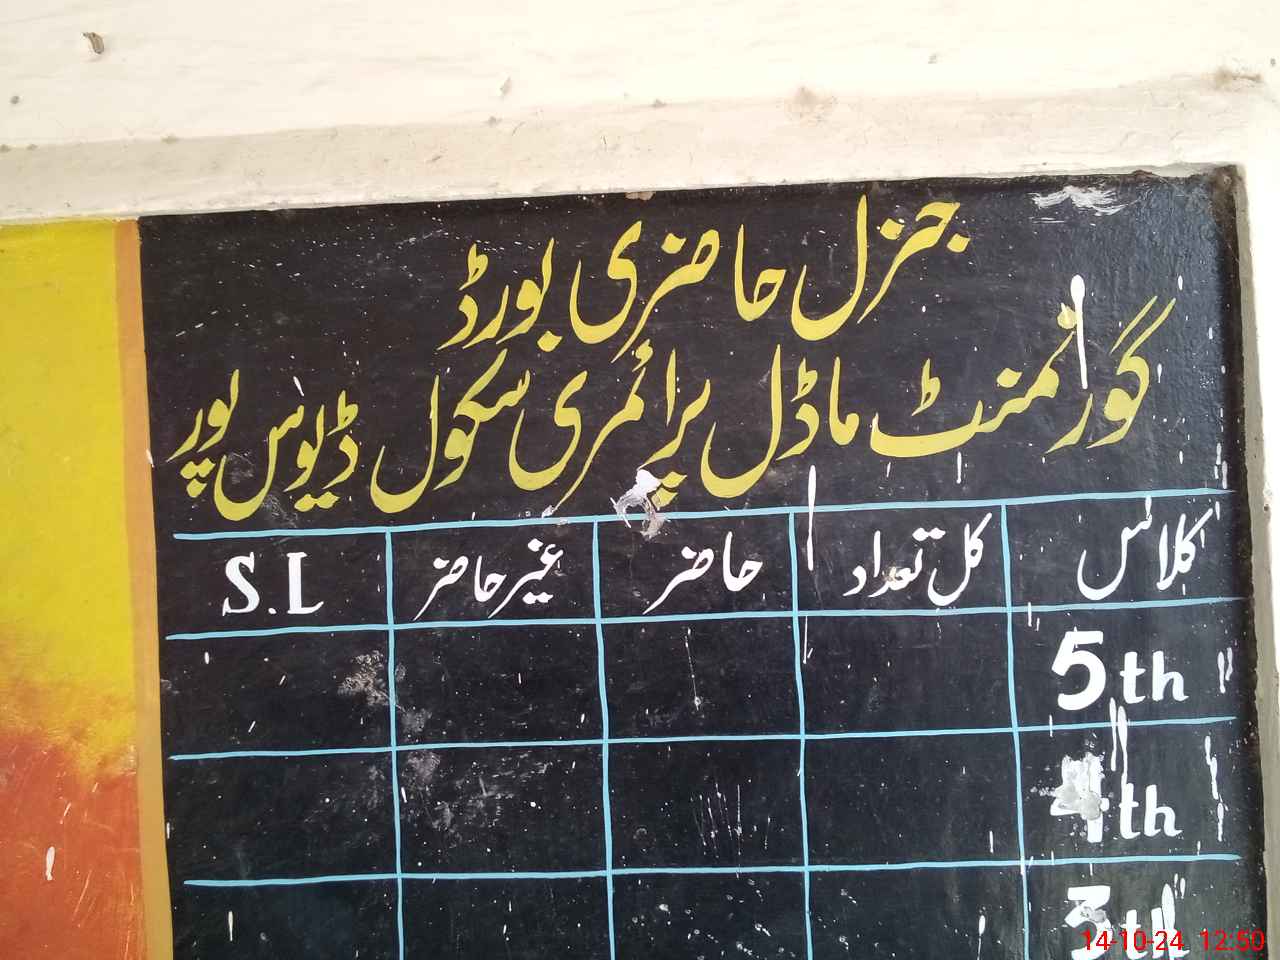 جنرل حاضری بورڈ
گورنمنٹ ماڈل پرائمری سکول ڈیوس پور
کلاس کل تعداد حاضر غیر حاضر S.L
5th
4th
3th
14-10-24 12:50